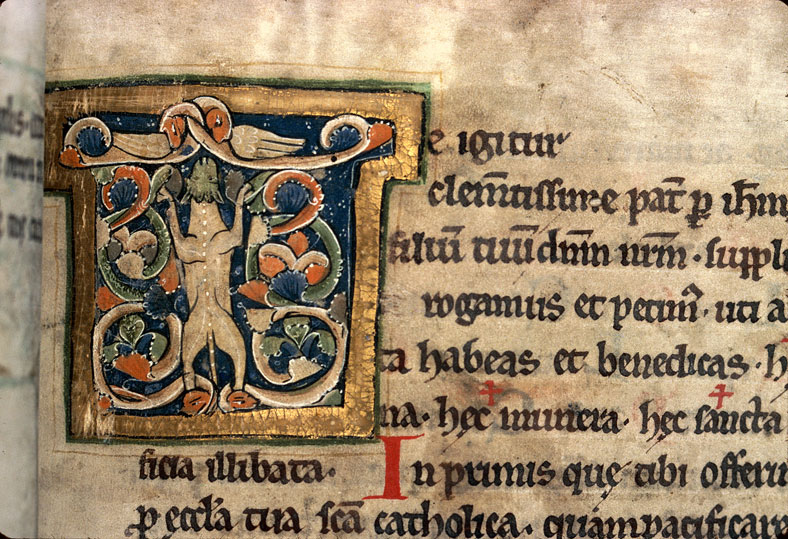 Te igitur
clem̄tissime pat̄ p ih̄m
filiū tuū dn̄m nr̄m · suppli
rogamus et petim᷒ · uti a
ta habeas et benedicas · h
na · hęc munera · hęc sanc̄ta
ficia illibata ·
In primis quę tibi offeri
p eccl̄a tua sc̄a catholica · quam pacificare